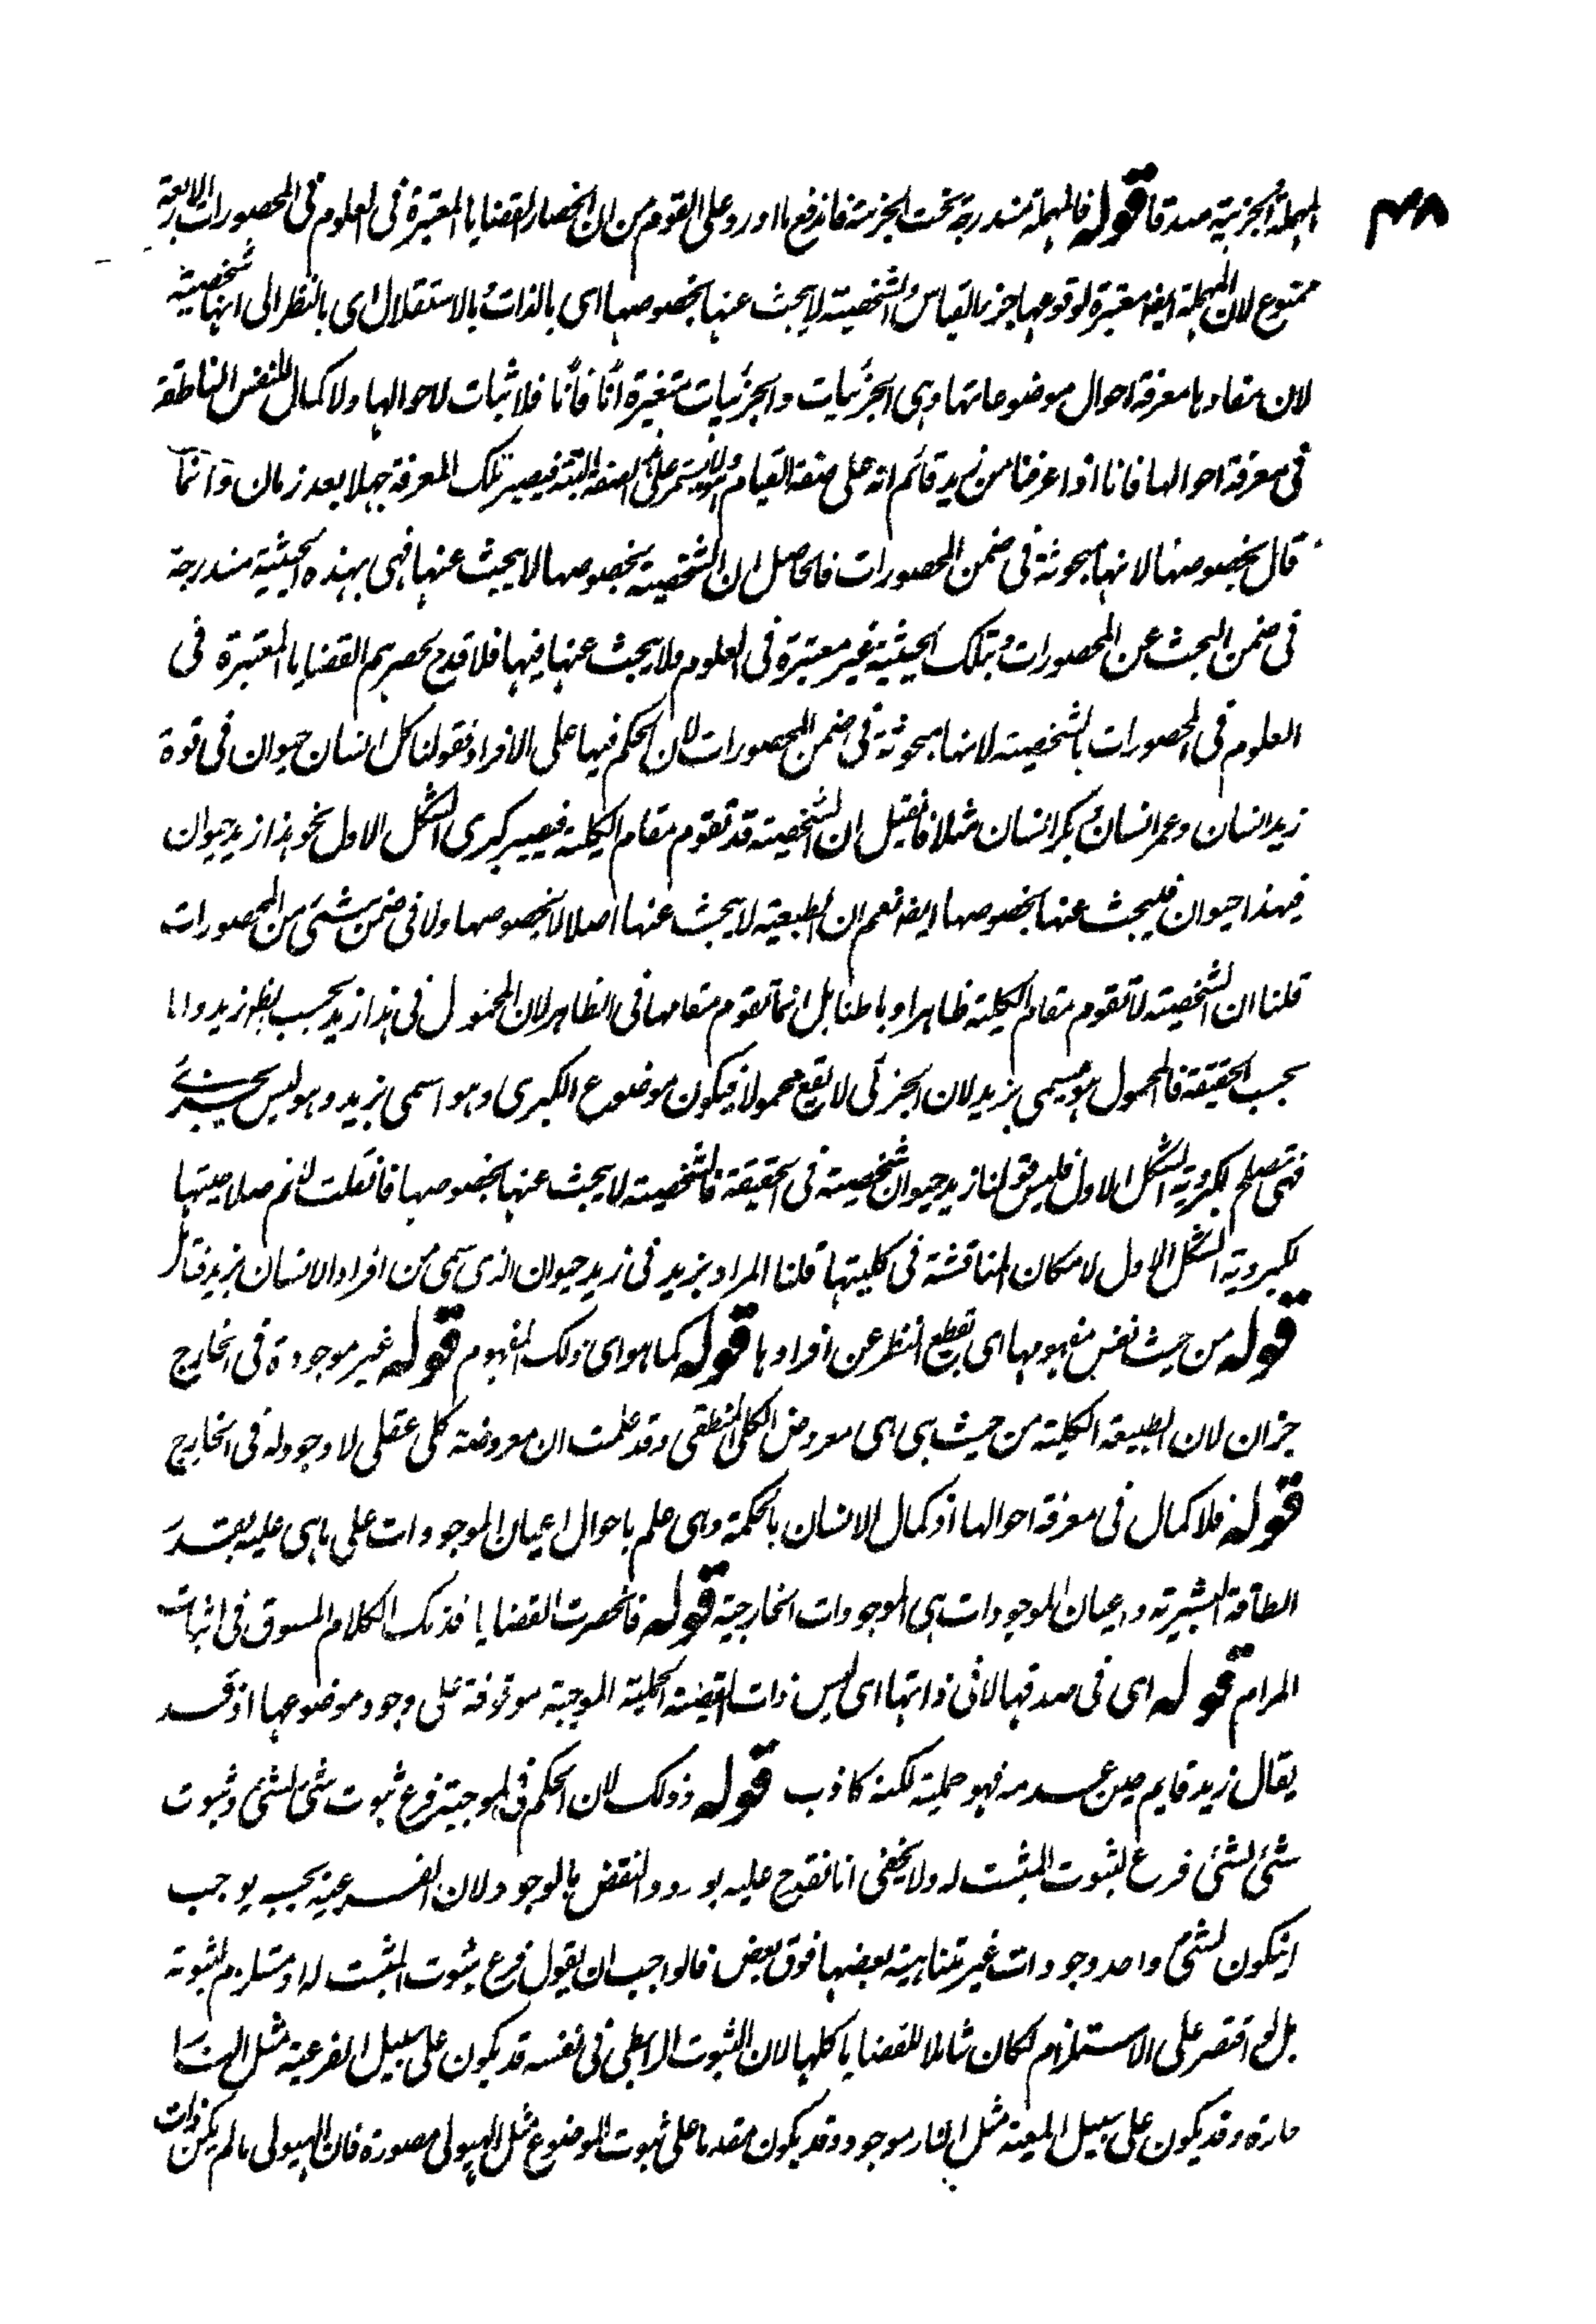 ٤٨
المهملة الجزئية صدقا قوله فالمهملة مندرجة تحت الجزئية فاندفع ما اورد على القوم من ان انحصار القضايا المعتبرة فى العلوم فى المحصورات الاربعة
ممنوع لان المهملة ايضا معتبرة لوقوعها جزء القياس والشخصية لا يبحث عنها بخصوصها اى بالذات وبالاستقلال اى بالنظر الى انها شخصية
لان مفادها معرفة احوال موضوعاتها وهى الجزئيات والجزئيات متغيرة آنا فآنا فلا ثبات لاحوالها ولا كمال للنفس الناطقة
فى معرفة احوالها فانا اذا عرفنا من زيد قائم انه على صفة القيام ولا يستمر على الصفة البتة فيصير تلك المعرفة جهلا بعد زمان وانما
قال بخصوصها لانها مبحوثة فى ضمن المحصورات فالحاصل ان الشخصية بخصوصها لا يبحث عنها فهى بهذه الحيثية مندرجة
فى ضمن البحث عن المحصورات وبتلك الحيثية غير معتبرة فى العلوم ولا يبحث عنها فيها فلا قدح بحصرهم القضايا المعتبرة فى
العلوم فى المحصورات بالشخصية لانها مبحوثة فى ضمن المحصورات لان الحكم فيها على الافراد فقولنا كل انسان حيوان فى قوة
زيد انسان وعمر انسان وبكر انسان مثلا فان قيل ان الشخصية قد تقوم مقام الكلية فيصير كبرى الشكل الاول نحو هذا زيد حيوان
فهذا حيوان فيبحث عنها بخصوصها ايضا نعم ان الطبعية لا يبحث عنها اصلا لا بخصوصها ولا فى ضمن شئ من المحصورات
قلنا ان الشخصية لا تقوم مقام الكلية ظاهرا وباطنا بل انما تقوم مقامها فى الظاهر لان المحمول فى هذا زيد بحسب الظ زيد واما
بحسب الحقيقة فالمحمول هو مسمى بزيد لان الجزئى لا يقع محمولا فيكون موضوع الكبرى وهو اسمى بزيد وهو ليس بجزئى
فهى تصلح لكبروية الشكل الاول فليس قولنا زيد حيوان شخصية فى الحقيقة فالشخصية لا يبحث عنها بخصوصها فان قلت لانم صلاحيتها
لكبروية الشكل الاول لامكان المناقشة فى كليتها قلنا المراد بزيد فى زيد حيوان الذى سمى من افراد الانسان بزيد فتامل
قوله من حيث نفس مفهومها اى بقطع النظر عن افرادها قوله كما هو اى ذلك المفهوم قوله غير موجودة فى الخارج
خبر ان لان الطبيعة الكلية من حيث هى هى معروض الكلى المنطقى وقد علمت ان معروضه كلى عقلى لا وجود له فى الخارج
قوله فلا كمال فى معرفة احوالها اذ كمال الانسان بالحكمة وهى علم باحوال اعيان الموجودات على ما هى عليه بقدر
الطاقة البشرية واعيان الموجودات هى الموجودات الخارجية قوله فانحصرت القضايا فذلك الكلام المسوق فى اثبات
المرام قوله اى فى صدقها لا فى ذاتها اى ليس ذات القضية الحملية الموجبة موقوفة على وجود موضوعها اذ قد
يقال زيد قايم حين عدمه فهو حملية لكنه كاذب قوله وذلك لان الحكم فى الموجبة فرع ثبوت شئ لشئ وثبوت
شئ لشئ فرع لثبوت المثبت له ولا يخفى انا نقدح عليه بورود النقض بالوجود لان الفرعية يجب يوجب
ان يكون لشئ واحد وجودات غير متناهية بعضها فوق بعض فالواجب ان يقول فرع ثبوت المثبت له او مستلزم لثبوته
بل لو اقتصر على الاستلزام لكان شاملا للقضايا كلها لان الثبوت الرابطى فى نفسه قد يكون على سبيل الفرعية مثل النار
حارة وقد يكون على سبيل المعية مثل النار موجود وقد يكون مقدما على ثبوت الموضوع مثل الهيولى مصورة فان الهيولى مالم يكن ذات